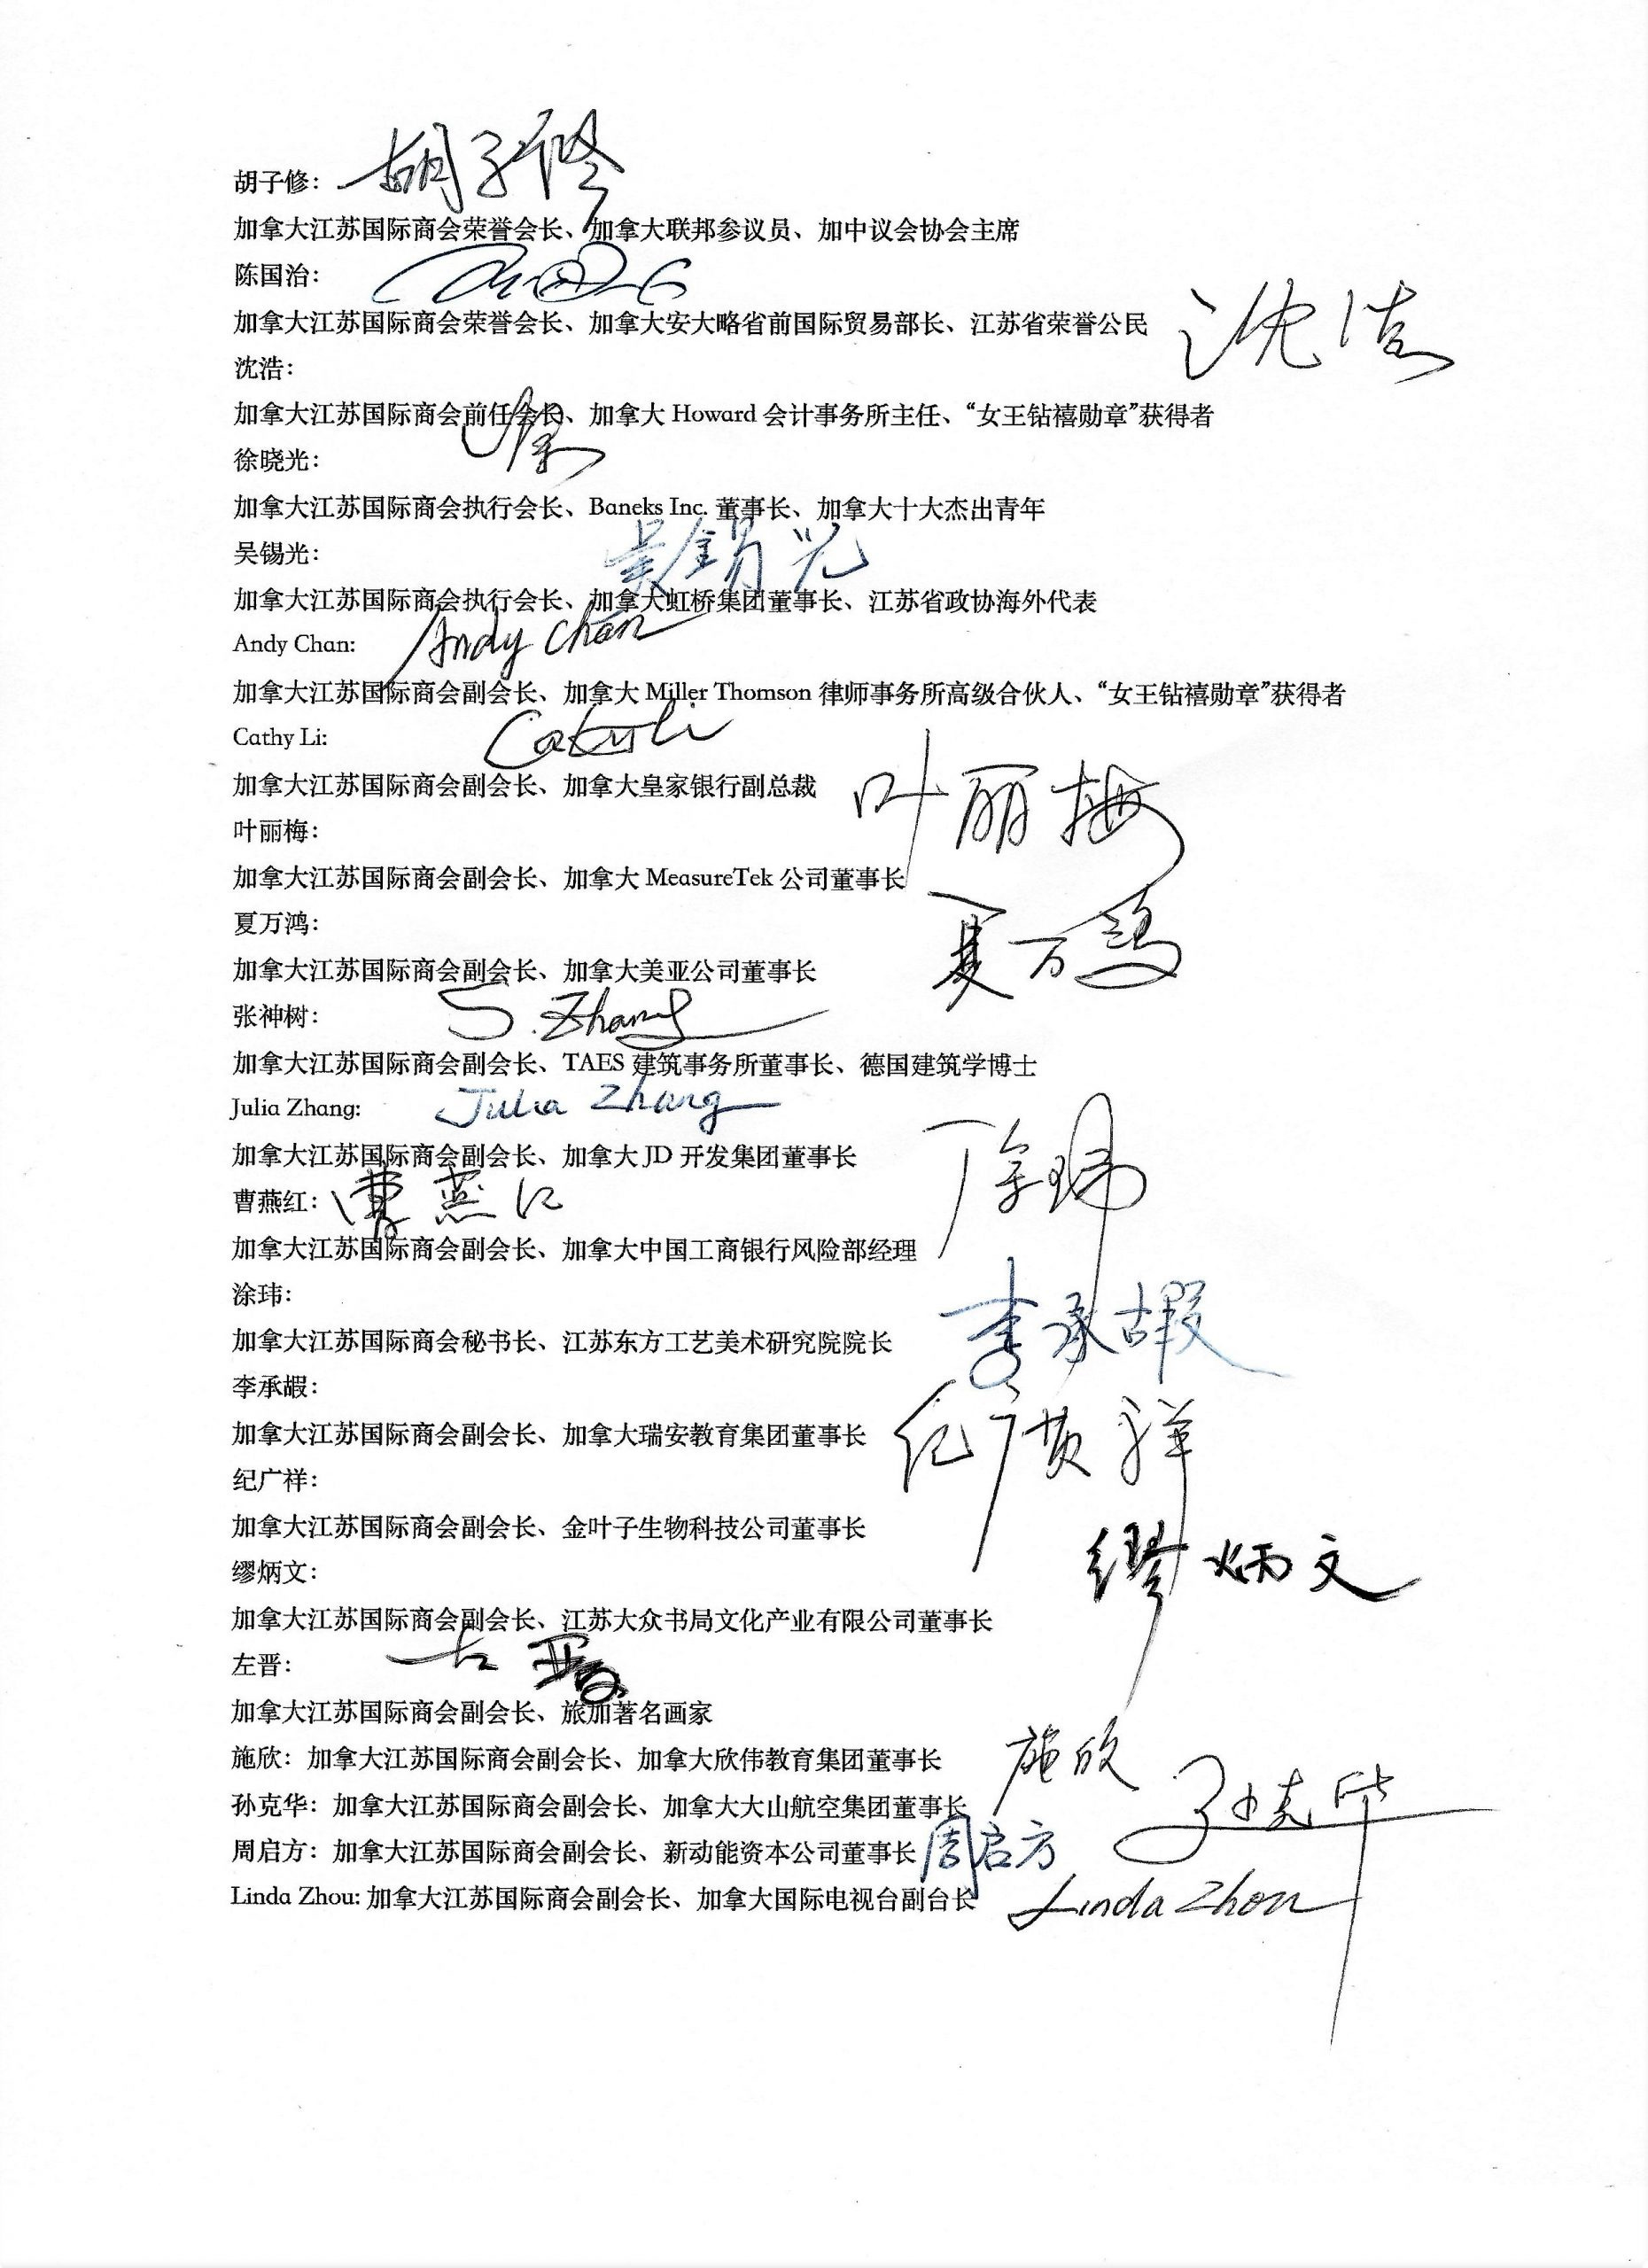 胡子修： 胡子修
加拿大江苏国际商会荣誉会长、加拿大联邦参议员、加中议会协会主席
陈国治：
加拿大江苏国际商会荣誉会长、加拿大安大略省前国际贸易部长、江苏省荣誉公民
沈浩： 沈浩
加拿大江苏国际商会前任会长、加拿大 Howard 会计事务所主任、“女王钻禧勋章”获得者
徐晓光： 徐
加拿大江苏国际商会执行会长、Baneks Inc. 董事长、加拿大十大杰出青年
吴锡光： 吴錫光
加拿大江苏国际商会执行会长、加拿大虹桥集团董事长、江苏省政协海外代表
Andy Chan: Andy Chan
加拿大江苏国际商会副会长、加拿大 Miller Thomson 律师事务所高级合伙人、“女王钻禧勋章”获得者
Cathy Li: Cathy Li
加拿大江苏国际商会副会长、加拿大皇家银行副总裁
叶丽梅： 叶丽梅
加拿大江苏国际商会副会长、加拿大 MeasureTek 公司董事长
夏万鸿： 夏万鸿
加拿大江苏国际商会副会长、加拿大美亚公司董事长
张神树： S. Zhang
加拿大江苏国际商会副会长、TAES 建筑事务所董事长、德国建筑学博士
Julia Zhang: Julia Zhang
加拿大江苏国际商会副会长、加拿大 JD 开发集团董事长
曹燕红： 曹燕红
加拿大江苏国际商会副会长、加拿大中国工商银行风险部经理
涂玮： 涂玮
加拿大江苏国际商会秘书长、江苏东方工艺美术研究院院长
李承嘏： 李承嘏
加拿大江苏国际商会副会长、加拿大瑞安教育集团董事长
纪广祥： 纪广祥
加拿大江苏国际商会副会长、金叶子生物科技公司董事长
缪炳文： 缪炳文
加拿大江苏国际商会副会长、江苏大众书局文化产业有限公司董事长
左晋： 左晋
加拿大江苏国际商会副会长、旅加著名画家
施欣：加拿大江苏国际商会副会长、加拿大欣伟教育集团董事长 施欣
孙克华：加拿大江苏国际商会副会长、加拿大大山航空集团董事长 孙克华
周启方：加拿大江苏国际商会副会长、新动能资本公司董事长 周启方
Linda Zhou: 加拿大江苏国际商会副会长、加拿大国际电视台副台长 Linda Zhou